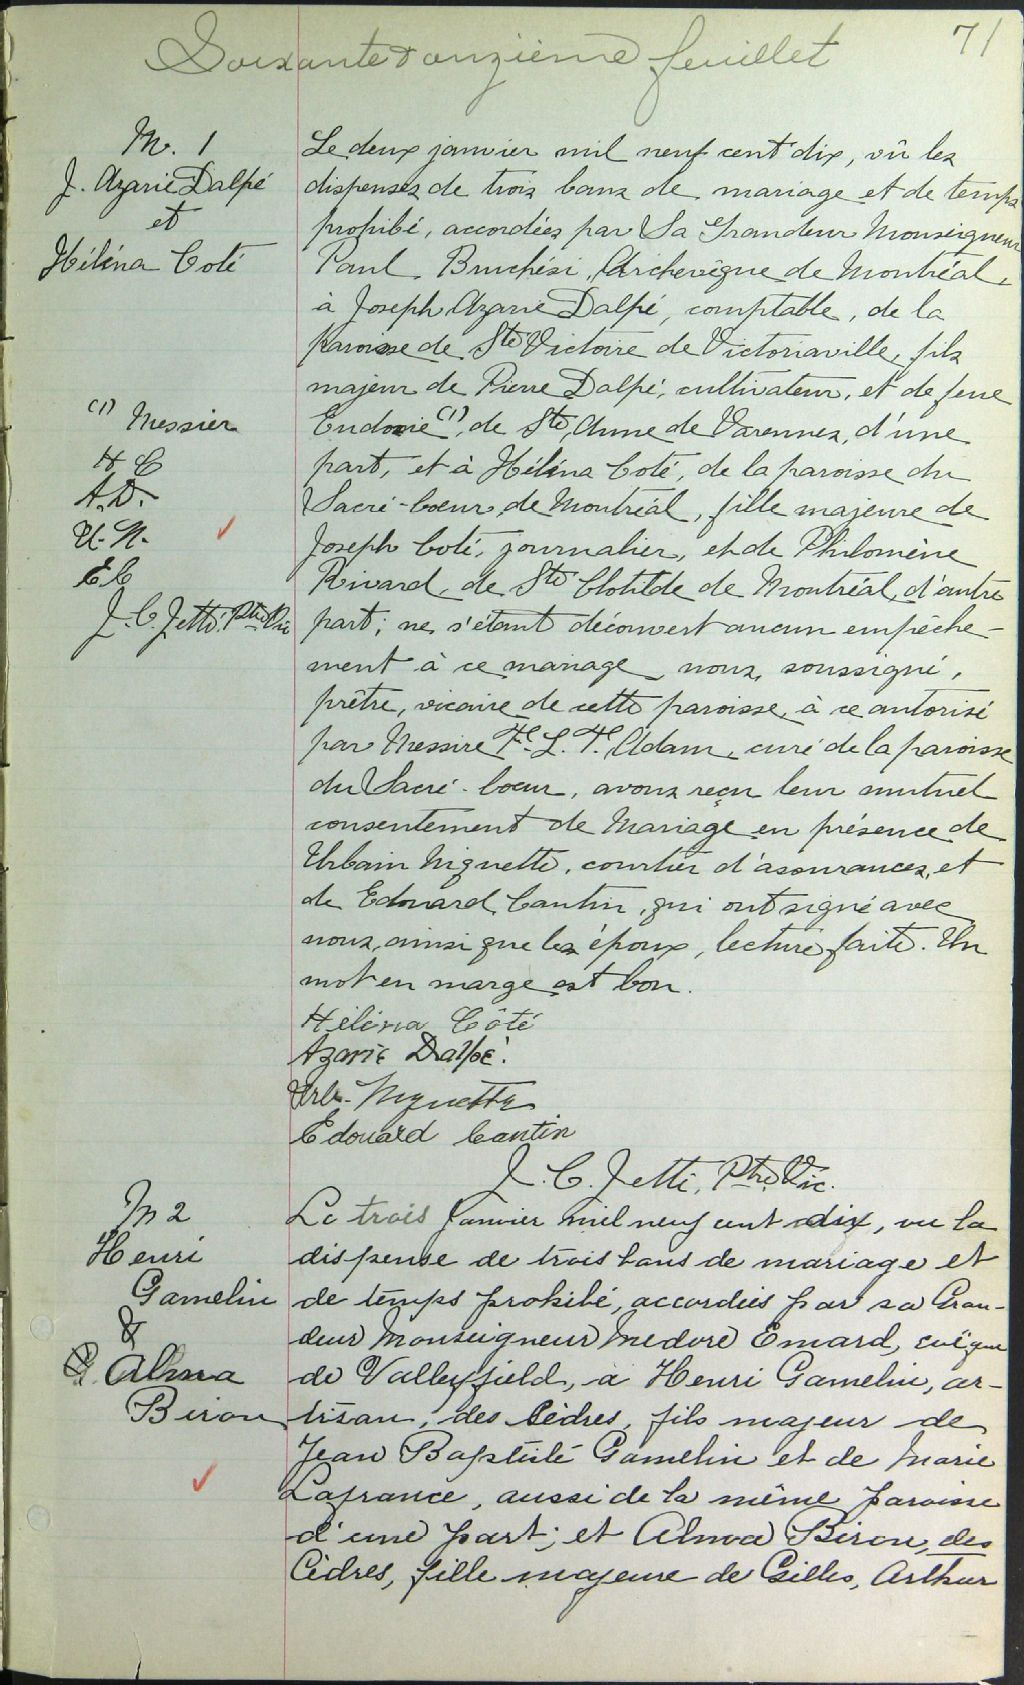 71
Soixante & onzième feuillet
M. 1
J. Azarie Dalpé
et
Héléna Coté
Le deux janvier mil neuf cent dix, vû les
dispenses de trois bans de mariage et de temps
prohibé, accordées par Sa Grandeur Monseigneur
Paul Bruchési, Archevêque de Montréal,
à Joseph Azarie Dalpé, comptable, de la
paroisse de Ste Victoire de Victoriaville, fils
majeur de Pierre Dalpé, cultivateur, et de feue
(1) Messier
H C
A. D.
U. N.
E C
J. C. Jetté, Ptre Vic
Eudoxie (1), de Ste Anne de Varennes, d'une
part, et à Héléna Coté, de la paroisse du
Sacré-Coeur de Montréal, fille majeure de
Joseph Coté, journalier, et de Philomène
Rivard, de Ste Clotilde de Montréal, d'autre
part; ne s'étant découvert aucun empêche-
ment à ce mariage, nous, soussigné,
prêtre, vicaire de cette paroisse, à ce autorisé
par Messire F. L. T. Adam, curé de la paroisse
du Sacré-Coeur, avons reçu leur mutuel
consentement de Mariage en présence de
Urbain Niquette, courtier d'assurances, et
de Edouard Cantin, qui ont signé avec
nous, ainsi que les époux, lecture faite. Un
mot en marge est bon.
Héléna Côté
Azarie Dalpé.
Urb. Niquette
Edouard Cantin
J. C. Jetté, Ptre Vic.
M 2
Henri
Gamelin
&
Alma
Biron
Le trois Janvier mil neuf cent dix, vu la
dispense de trois bans de mariage et
de temps prohibé, accordées par sa Gran-
deur Monseigneur Medore Emard, evêque
de Valleyfield, à Henri Gamelin, ar-
tisan, des Cèdres, fils majeur de
Jean Baptiste Gamelin et de Marie
Lafrance, aussi de la même paroisse
d'une part; et Alma Biron, des
Cèdres, fille majeure de Gilles, Arthur